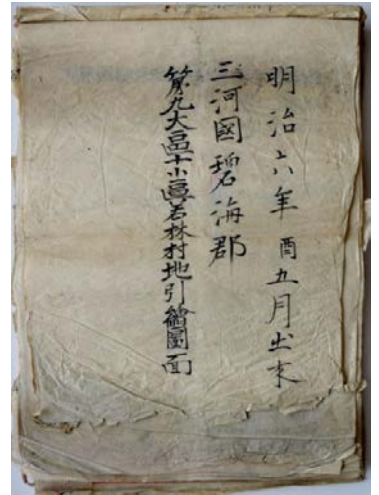 明治六年酉五月出来
三河國碧海郡
第九大區十小區若林村地引繪圖面